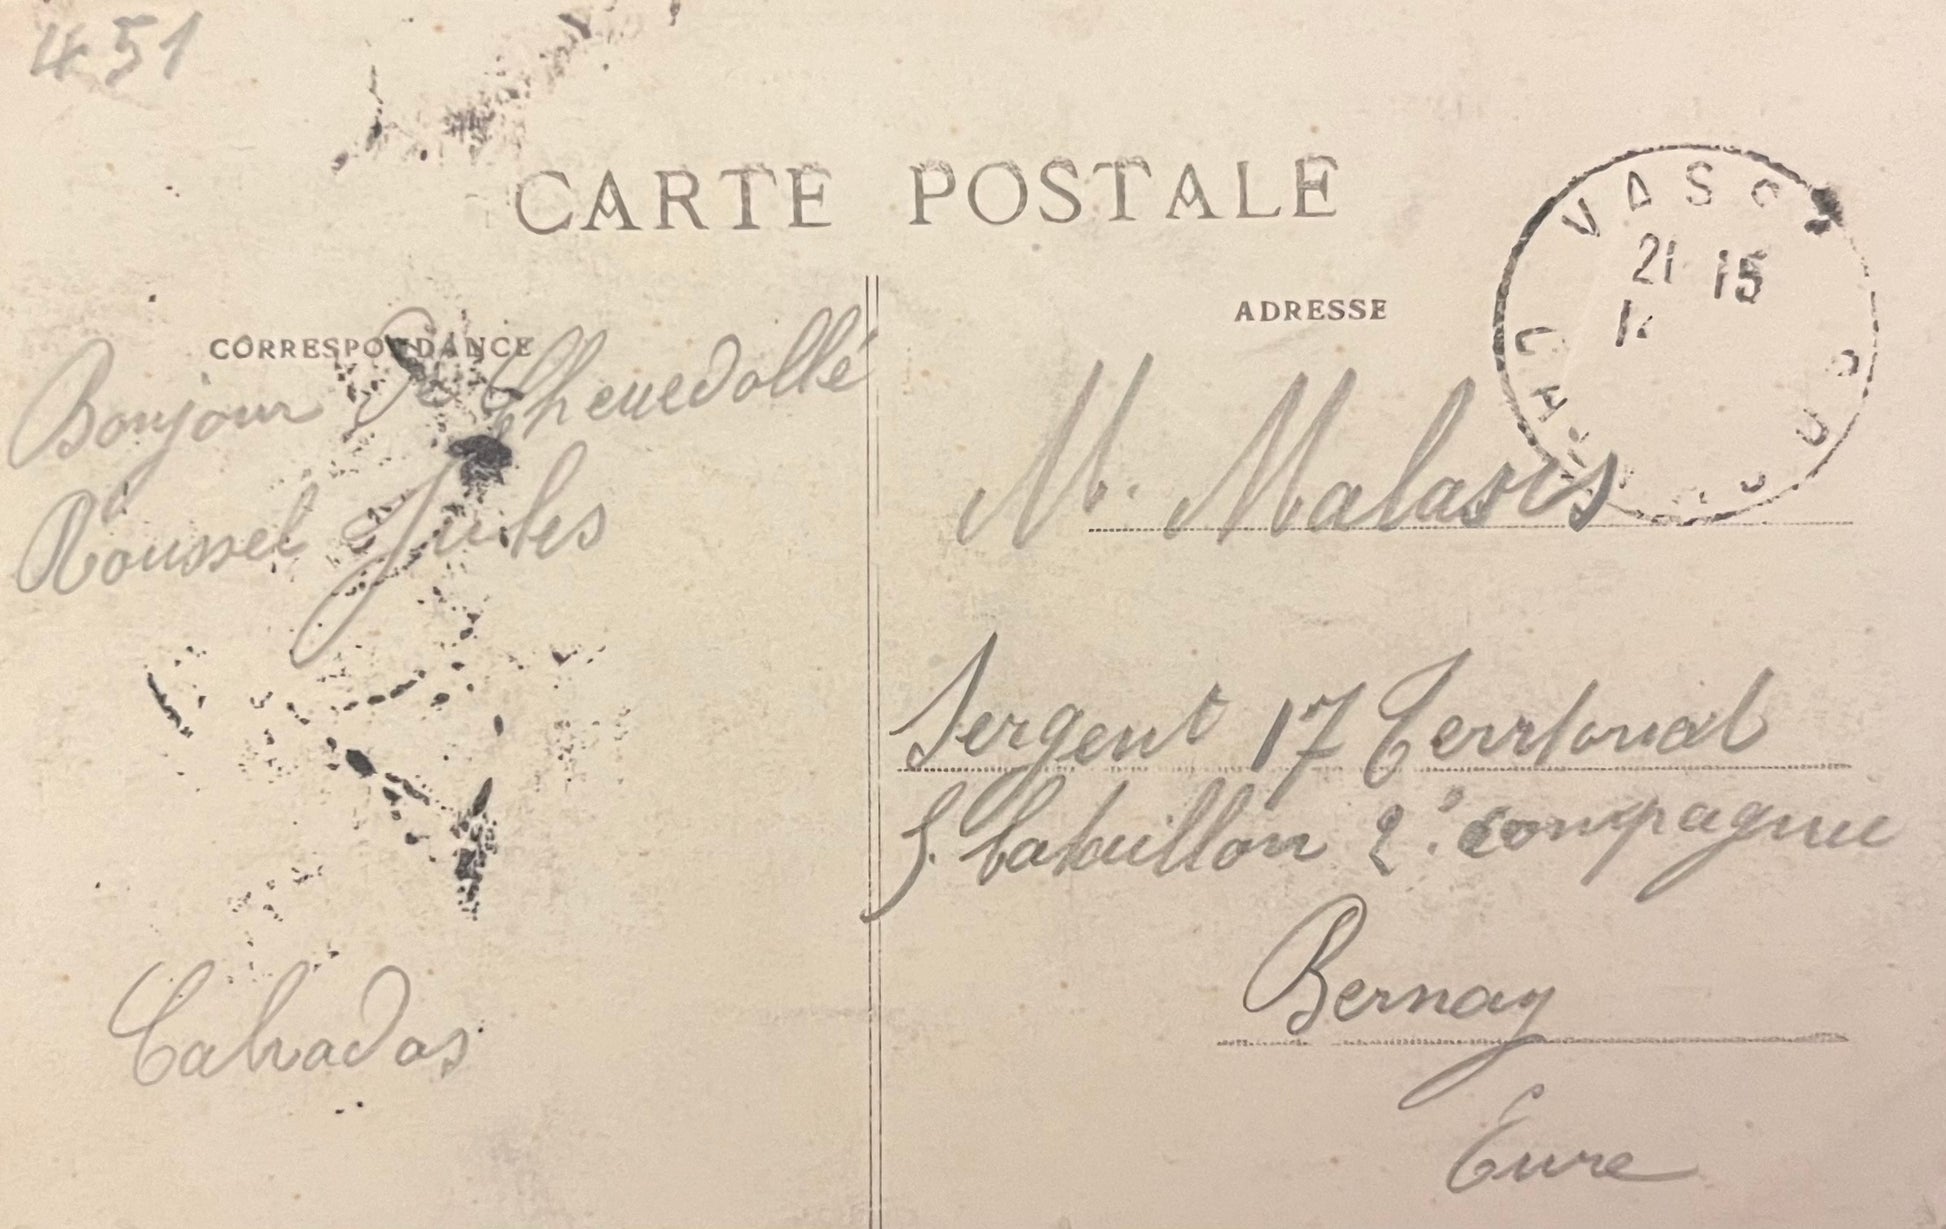 451
CARTE POSTALE
VASSY
21 15
CALVADOS
CORRESPONDANCE
Bonjour de Chenedollé
Roussel Jules
Calvados
ADRESSE
M. Malasis
Sergent 17 Territorial
5. bataillon 2e compagnie
Bernay
Eure